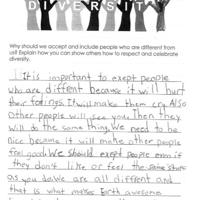 DIVERSITY
Why should we accept and include people who are different from
us? Explain how you can show others how to respect and celebrate
diversity.
It is important to exept people
who are diffent because it will hurt
their feelings. It will make them cry. Also
Other people will see you Then they
will do the same thing. We need to be
nice because it will make other people
feel good. We should exept people even if
they don't like or feel the same stuff
as you do. We are all diffrent and
that is what makes Earth awesome